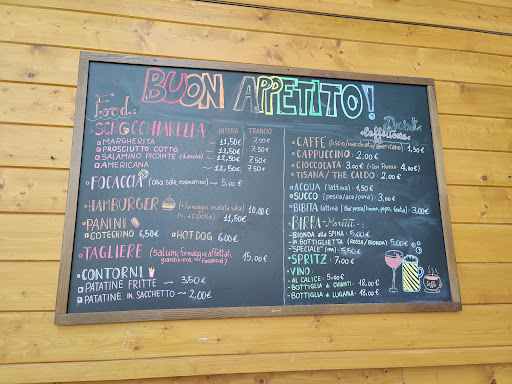 BUON APPETITO!
Food:
SCROCCHIARELLA INTERA TRANCIO
MARGHERITA → 11,50€ 7,00€
PROSCIUTTO COTTO → 12,50€ 7,50€
SALAMINO PICCANTE 12,50€ 7,50€
AMERICANA → 12,50€ 7,50€
FOCACCIA (olio, sale, rosmarino) → 5,00€
HAMBURGER (+ formaggio, insalata, salsa) 10,00€
(+ cipolla) 11,50€
PANINI
COTECHINO 6,50€ HOT DOG 6,00€
TAGLIERE (salumi, formaggi, affettati, giardiniera, focaccia) 15,00€
CONTORNI
PATATINE FRITTE → 3,50€
PATATINE IN SACCHETTO → 2,00€
Drink
Caffetteria
CAFFE (liscio/macchiato/americano) 1,50€
CAPPUCCINO 2,00€
CIOCCOLATA 3,00€ (con Panna) 4,00€
TISANA/ THE CALDO 2,00€
ACQUA (lattina) 1,50€
SUCCO (pesca/ace/pera) 3,00€
BIBITA lattina 3,00€
BIRRA Moritz
BIONDA alla SPINA 5,00€
in BOTTIGLIETTA (ROSSA/BIONDA) 5,00€
"SPECIALE" 5,50€
SPRITZ 7,00€
VINO:
AL CALICE: 5,00€
BOTTIGLIA di CHIANTI 18,00€
BOTTIGLIA di LUGANA 18,00€